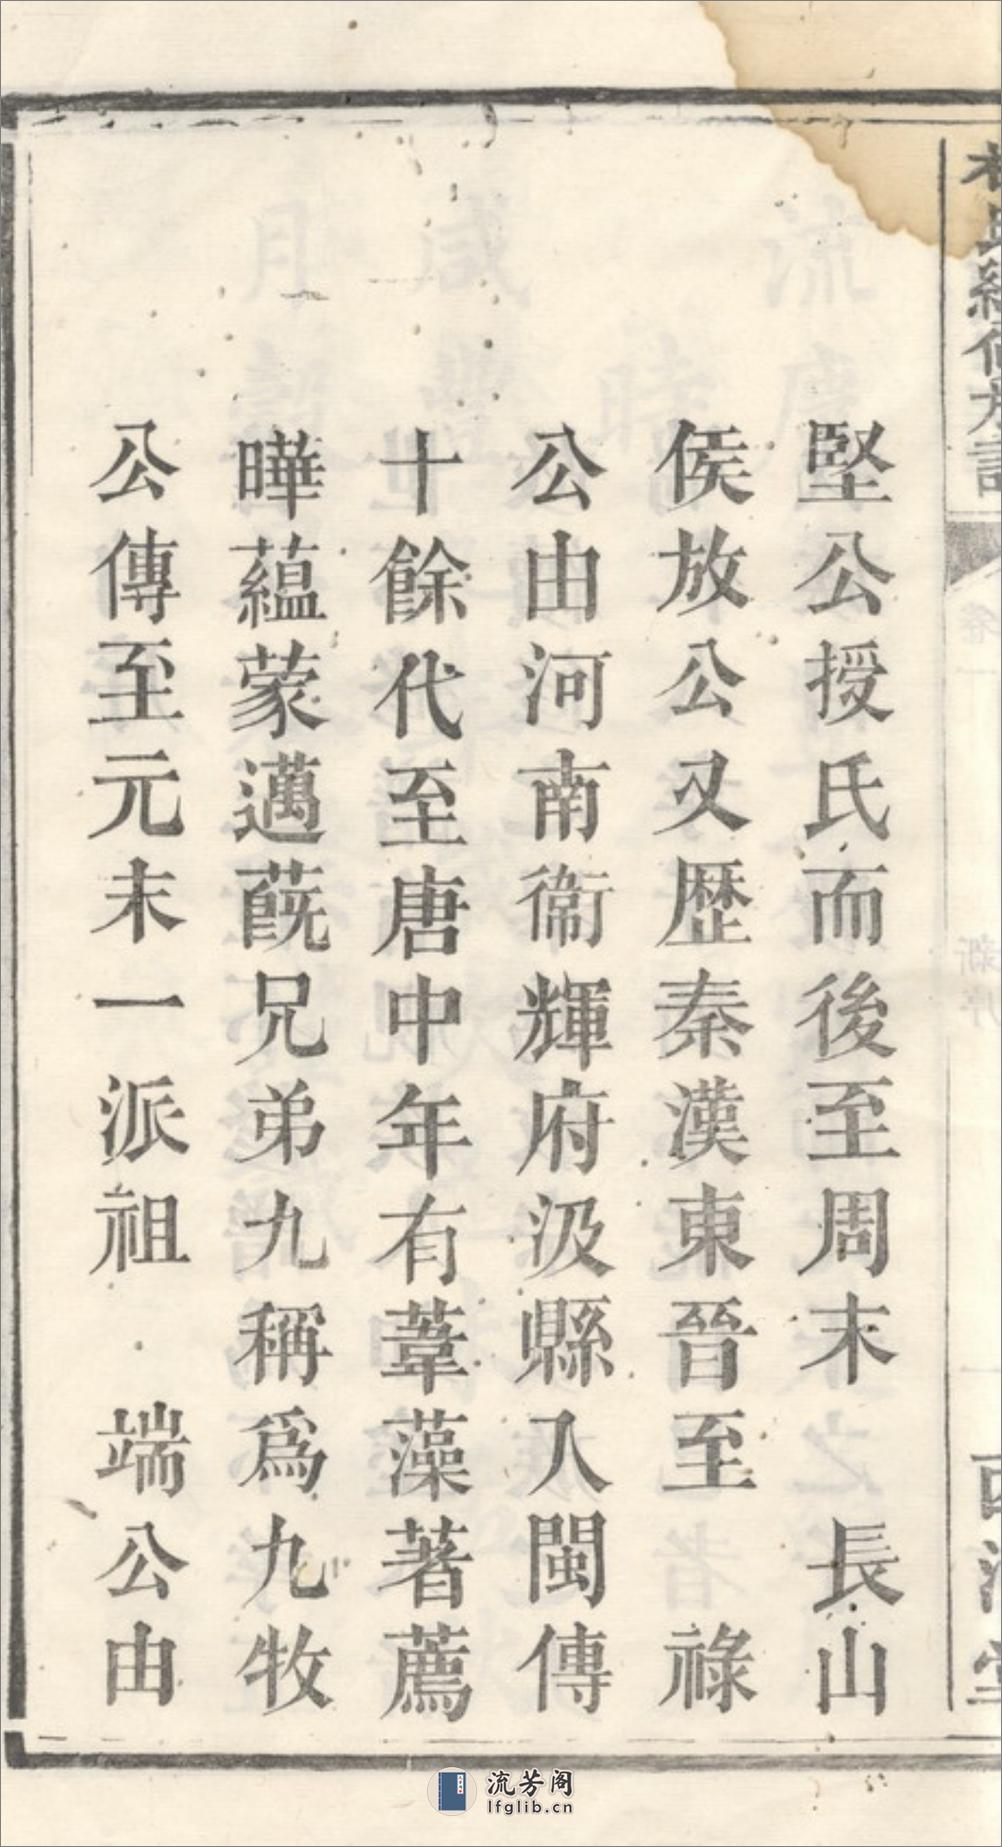 堅公授氏而後至周末　長山
侯放公又歷秦漢東晉至　祿
公由河南衞輝府汲縣入閩傳
十餘代至唐中年有葦藻著薦
曄蘊蒙邁蔇兄弟九稱爲九牧
公傳至元末一派祖　端公由
流芳阁
lfglib.cn